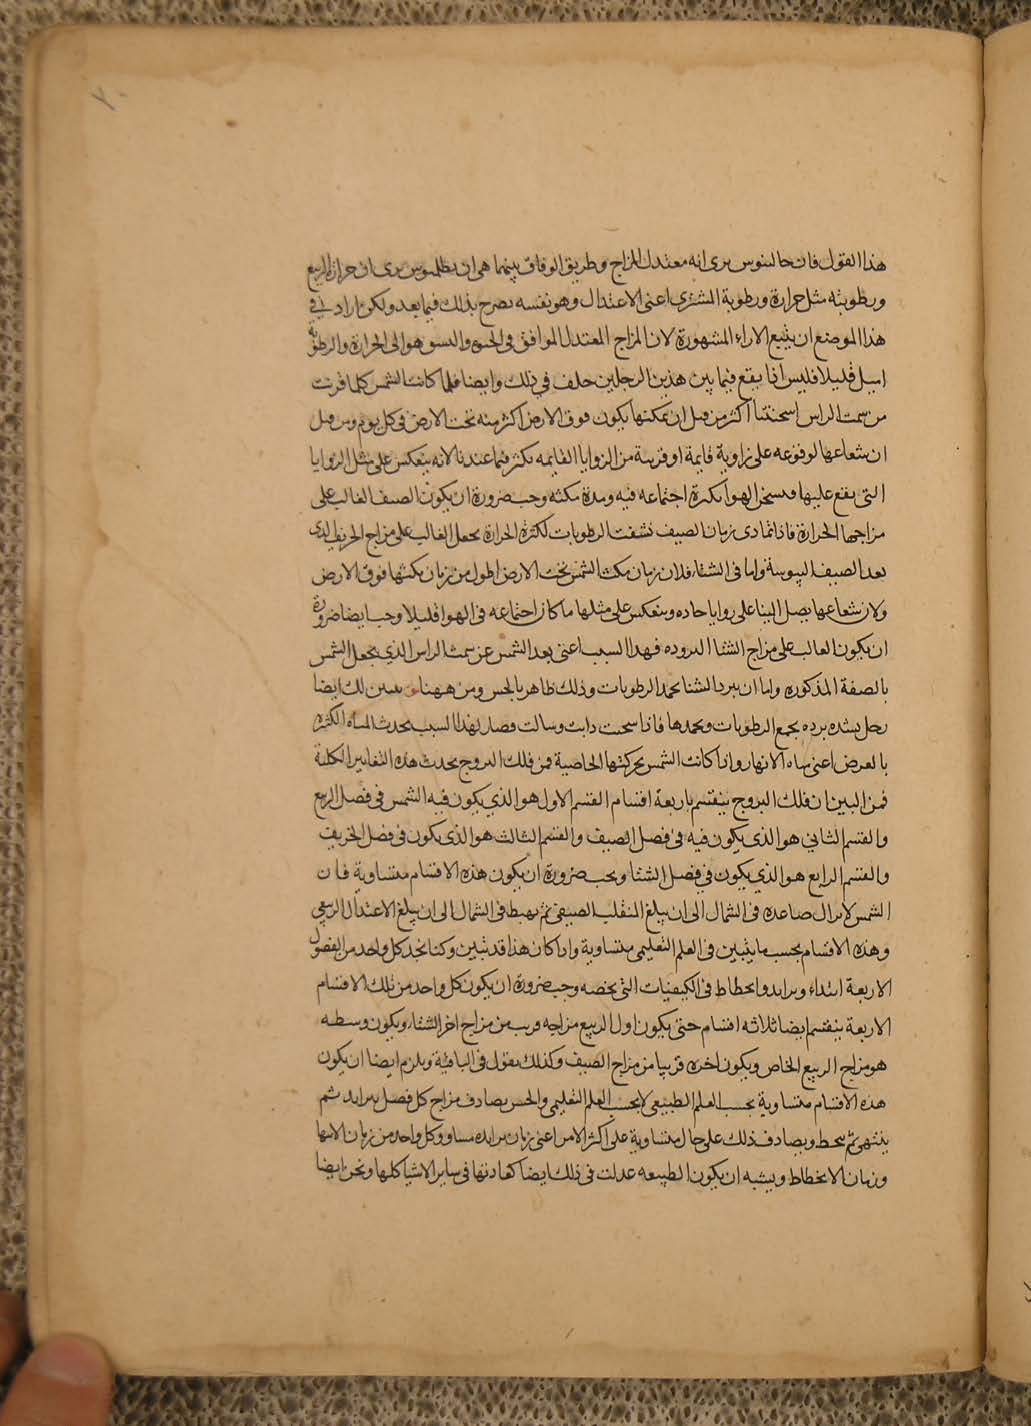 ٢٠
هذا القول فان جالينوس يرى انه معتدل المزاج وطريق الوفاق بينهما هي ان بطلميوس يرى ان حرارة الربيع
ورطوبته مثل حرارة ورطوبة المشترى اعنى الاعتدال وهو نفسه يصرح بذلك فيما بعد ولكن اراد في
هذا الموضع ان يتبع الاراء المشهورة لان المزاج المعتدل الموافق في الحس والنسو هو الى الحرارة والرطوبة
اميل قليلا فليس انما يقع فيما بين هذين الرجلين خلف في ذلك وايضا فلما كانت الشمس كلما قربت
من سمت الراس اسخنتنا اكثر من قبل ان مكثها يكون فوق الارض اكثر منه تحت الارض في كل يوم ومن قبل
ان شعاعها لوقوعه على زاوية قايمة او قريبة من الزوايا القايمه يكثر فيما عندنا لانه ينعكس على مثل الزوايا
التى يقع عليها فيسخن الهوا بكثرة اجتماعه فيه ومدة مكثه وجب ضرورة ان يكون الصيف الغالب على
مزاجها الحرارة فاذا تمادى زمان الصيف نشفت الرطوبات لكثرة الحرارة يجعل الغالب على مزاج الخريف الذى
بعد الصيف اليبوسة واما في الشتاء فلان زمان مكث الشمس تحت الارض اطول من زمان مكثها فوق الارض
ولان شعاعها يصل الينا على زوايا حاده وينعكس على مثلها ما كان اجتماعه في الهوا قليلا وجب ايضا ضرورة
ان يكون الغالب على مزاج الشتا البروده فهذا السبب اعنى بعد الشمس عن سمت الراس الذي يجعل الشمس
بالصفة المذكورة واما ان يبرد الشتا يجمد الرطوبات وذلك ظاهر بالحس ومن ههنا يتبين لك ايضا
زحل بشده برده يجمع الرطوبات ويجمدها فاذا سخنت ذابت وسالت فصار لهذا السبب يحدث المياه الكثيرة
بالعرض اعنى مياه الانهار واذا كانت الشمس بحركتها الخاصية من فلك البروج يحدث هذه التغايير الكلية
فمن البين ان فلك البروج ينقسم باربعة اقسام القسم الاول هو الذي يكون فيه الشمس في فصل الربيع
والقسم الثاني هو الذى يكون فيه في فصل الصيف والقسم الثالث هو الذى يكون في فصل الخريف
والقسم الرابع هو الذي يكون في فصل الشتا ويجب ضرورة ان يكون هذه الاقسام متساوية فان
الشمس لا يزال صاعده في الشمال الى ان يبلغ المنقلب الصيفي ثم يهبط في الشمال الى ان يبلغ الاعتدال الربيعي
وهذه الاقسام بحسب ما يتبين في العلم التعليمي متساوية واذا كان هذا قد تبين وكنا نجد كل واحد من الفصول
الاربعة ابتداء وتزايد وانحطاط في الكيفيات التى يخصه وجب ضرورة ان يكون كل واحد من تلك الاقسام
الاربعة ينقسم ايضا ثلاثه اقسام حتى يكون اول الربيع مزاجه قريب من مزاج اخر الشتاء ويكون وسطه
هو مزاج الربيع الخاص ويكون اخره قريبا من مزاج الصيف وكذلك يقول في الباقية ويلزم ايضا ان يكون
هذه الاقسام متساوية بحسب العلم الطبيعي لا بحسب العلم التعليمي والحس يصادف مزاج كل فصل يتزايد ثم
ينتهي ثم ينحط ويصادف ذلك على حال متساوية على اكثر الامر اعنى زمان تزايده مساو وكل واحد من زمان الانتها
وزمان الانحطاط ويشبه ان يكون الطبيعه عدلت في ذلك ايضا كعادتها في ساير الاشيا كلها ونحن ايضا